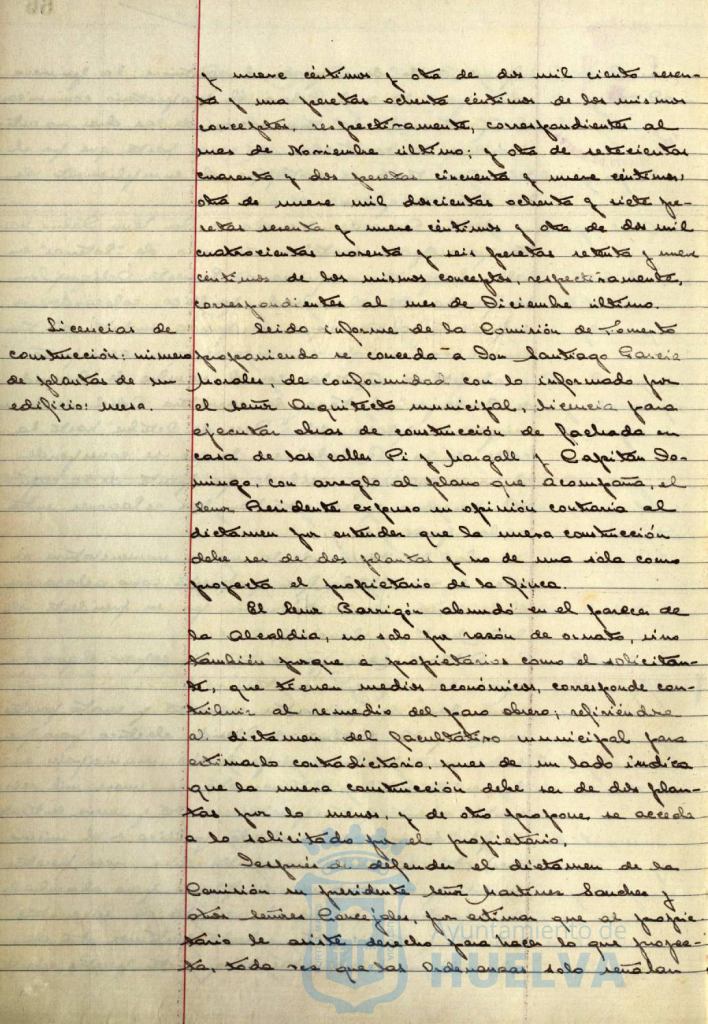 y nueve céntimos y otra de dos mil ciento sesen-
ta y una pesetas ochenta céntimos de los mismos
conceptos, respectivamente, correspondientes al
mes de Noviembre último; y otra de setecientas
cuarenta y dos pesetas cincuenta y nueve céntimos,
otra de nueve mil doscientas ochenta y siete pe-
setas sesenta y nueve céntimos y otra de dos mil
cuatrocientas noventa y seis pesetas setenta y nueve
céntimos de los mismos conceptos, respectivamente,
correspondientes al mes de Diciembre último.
Licencias de
construcción: número
de plantas de un
edificio: nueva.
Leido informe de la Comisión de Fomento
proponiendo se conceda a Don Santiago García
Morales, de conformidad con lo informado por
el señor Arquitecto municipal, licencia para
ejecutar obras de construcción de fachada en
casa de las calles Pi y Margall y Capitán Do-
mingo, con arreglo al plano que acompaña, el
señor Presidente expuso su opinión contraria al
dictamen por entender que la nueva construcción
debe ser de dos plantas y no de una sola como
proyecta el propietario de la finca.
El señor Barrigón abundó en el parecer de
la Alcaldía, no solo por razón de ornato, sino
también porque a propietarios como el solicitan-
te, que tienen medios económicos, corresponde con-
tribuir al remedio del paro obrero; refiriéndose
a dictamen del facultativo municipal para
estimarlo contradictorio, pues de un lado indica
que la nueva construcción debe ser de dos plan-
tas por lo menos, y de otro propone se acceda
a lo solicitado por el propietario.
Después de defender el dictamen de la
Comisión su presidente señor Martinez Sanchez y
otros señores Concejales, por estimar que al propie-
tario le asiste derecho para hacer lo que proyec-
ta, toda vez que las Ordenanzas solo señalan
Ayuntamiento de
HUELVA